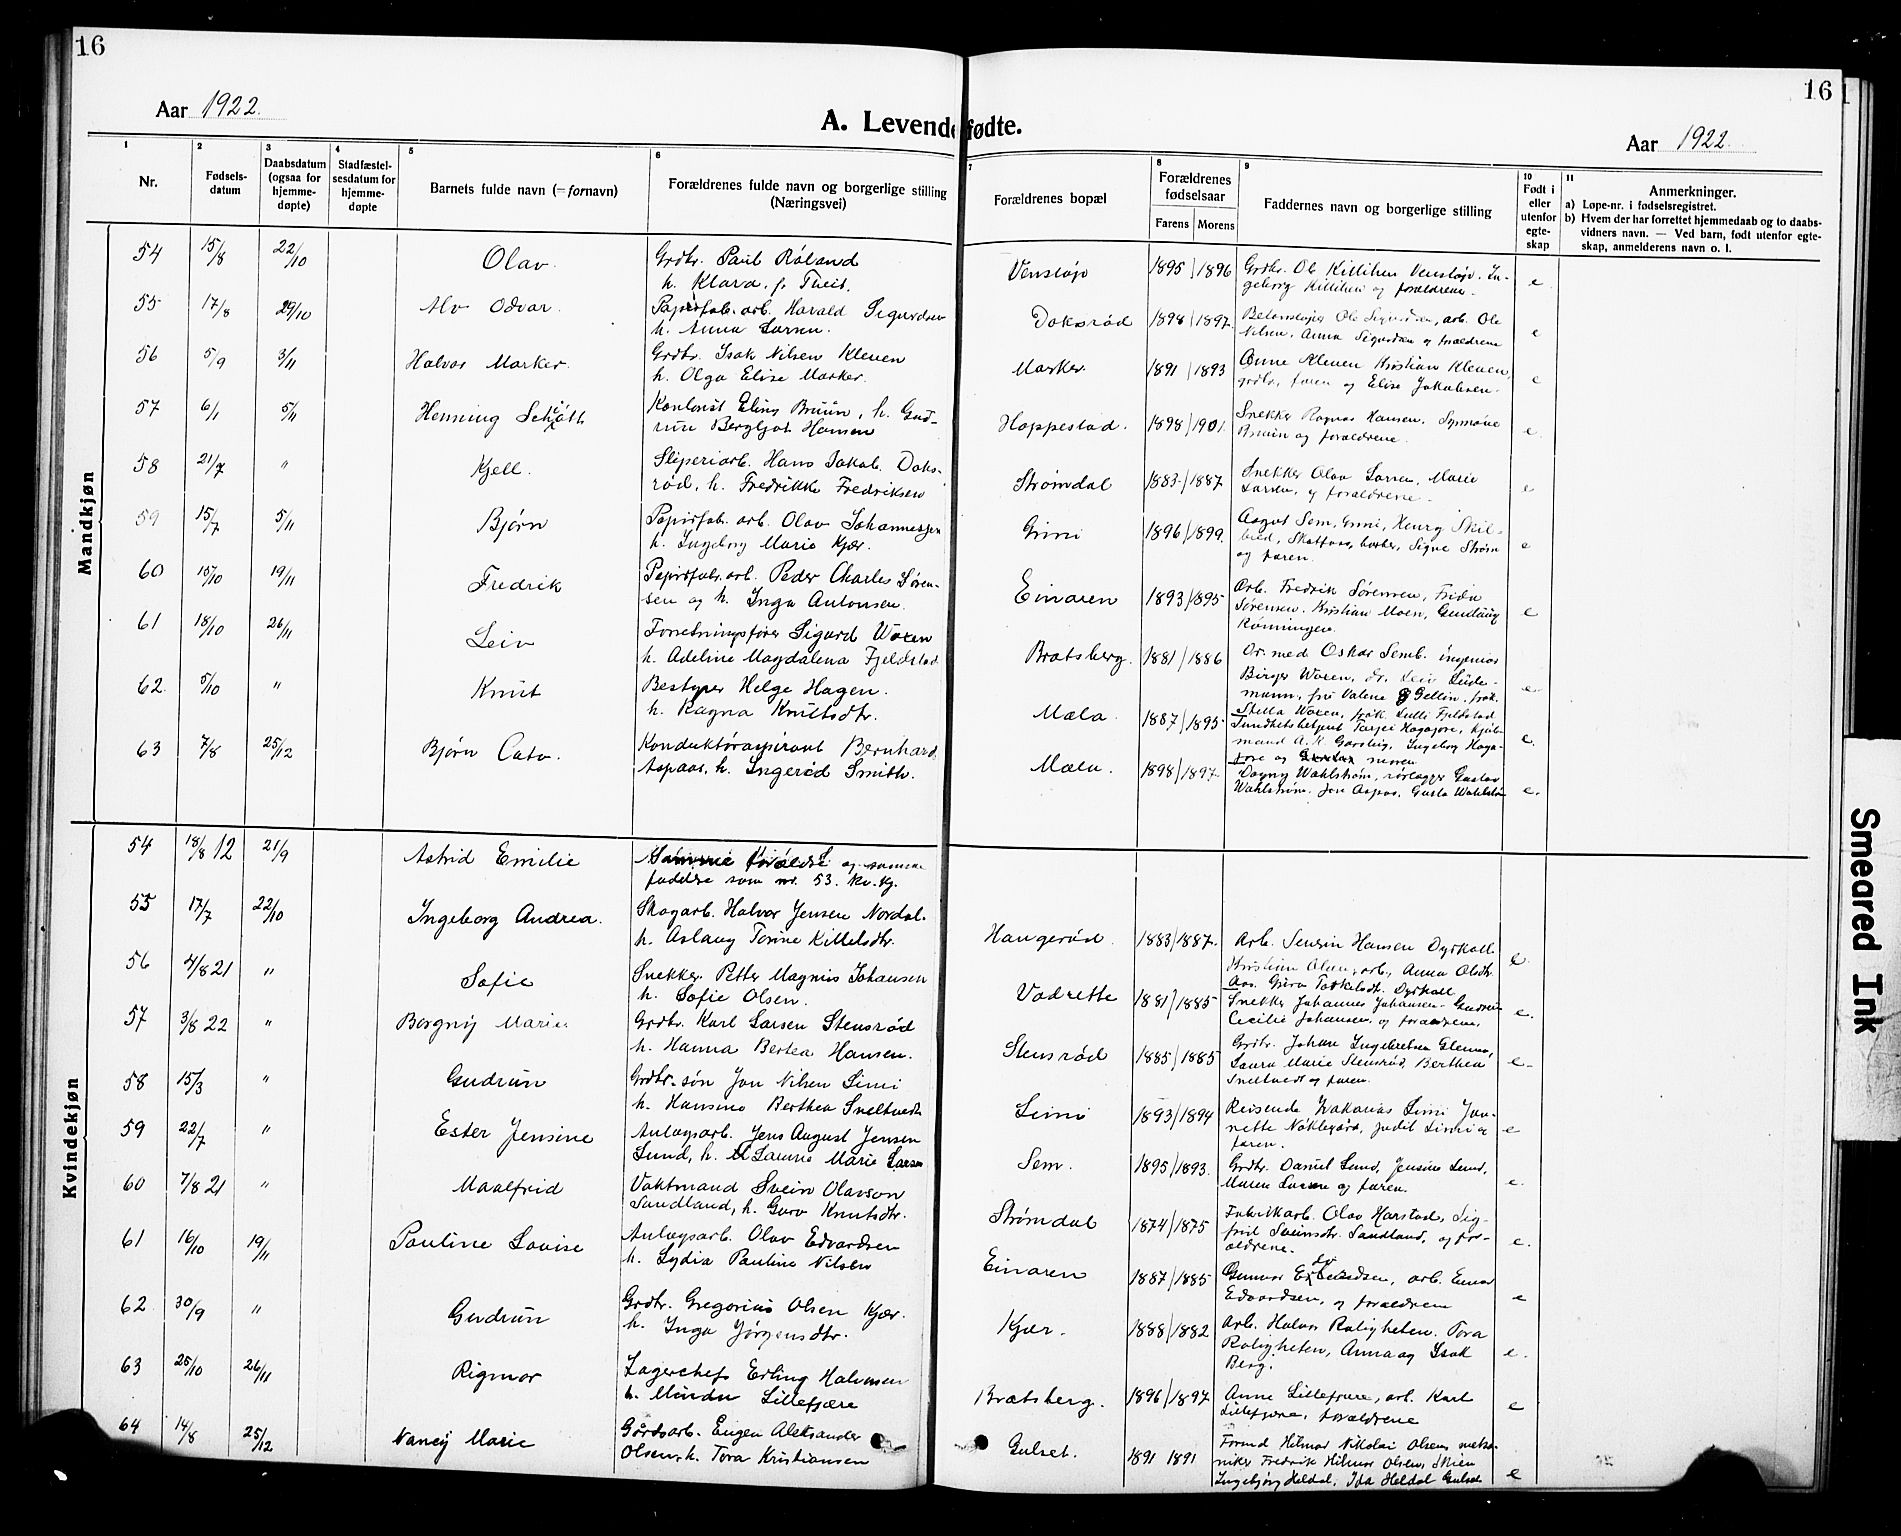 16
16
Aar 1922.
A. Levendefødte.
Aar 1922.
1 Nr.
2 Fødsels-datum
3 Daabsdatum (ogsaa for hjemme-døpte)
4 Stadfæstel-sesdatum for hjemme-døpte
5 Barnets fulde navn (= fornavn)
6 Forældrenes fulde navn og borgerlige stilling (Næringsvei)
7 Forældrenes bopæl
8 Forældrenes fødselsaar
Farens Morens
9 Faddernes navn og borgerlige stilling
10 Født i eller utenfor egte-skap
11 Anmerkninger.
a) Løpe-nr. i fødselsregistret.
b) Hvem der har forrettet hjemmedaab og to daabs-
vidners navn. — Ved barn, født utenfor egte-
skap, anmelderens navn o. l.
Mandkjøn
54 15/8 22/10 Olav. Grdbr. Paul Røland Venstøp 1895/1896 Grdbr. Ole Killihen Venstøp. In- e
h. Klara, f. Theis. geborg Killihen og forældrene.
55 17/8 29/10 Alv Odvar. Papirfab. arb. Harald Sigurdsen Doksrød 1898/1897. Betonstøper Ole Sigurdsen, arb. Ole e
h. Anna Larsen. Nilsen, Anna Sigurdsen og forældrene
56 5/9 3/11 Halvor Marker. Grdbr. Isak Nilsen Kleven Marker 1891/1893 Anne Kleven Kristian Kleven, e
h. Olga Elise Marker. grdbr, faren og Elise Jakobsen.
57 6/1 5/11 Henning Kontorist Eling Bruun, h. Gud- Hoppestad. 1898/1901. Snekker Ragnar Hansen, Synnøve e.
run Bergljot Hansen Bruun og forældrene.
58 21/7 " Kjell. Sliperiarb. Hans Jakob Doks- Strømdal 1883/1887 Snekker Olav Larsen, Marie e
rød, h. Fredrikke Fredriksen Larsen, og forældrene.
59 15/7 5/11 Bjørn Papirfab. arb. Olav Johannessen Grini 1896/1899. Aagot Sem, Grini, Henry Skil- e
h. Ingeborg Marie Kjær. bred, Skotfoss, Signe Strøm
og faren.
60 15/10 19/11 Fredrik Papirfabr. arb. Peder Charles Søren- Einaren 1893/1895 Arb. Fredrik Sørensen, Frida e
sen og h. Inga Antonsen. Sørensen, Kristian Moen, Gunlaug
Rønningen.
61 18/10 26/11 Leiv Forretningsfører Sigurd Woxen Bratsberg. 1881/1886 Dr. med Oskar Semb. ingeniør
h. Adeline Magdalena Fjeldstad Birger Woxen, dr. Leiv Lüde- e
mann, fru Valene Gellin, frøk.
Stella Woxen, frøk. Lulli Fjeldstad
62. 5/10 " Knut Bestyrer Helge Hagen. Mæla 1887/1895 Sundhetsbetjent Terjei Hagajore, kjøb- e.
h. Ragna Knutsdtr. mand A. K. Gaasbig, Ingeborg Haga-
jore og moren
63 7/8 25/12 Bjørn Cato. Konduktøraspirant Bernhard Mæla. 1898/1897 Dagny Wahlstrøm, rørlægger Gustav e.
Aspaas, h. Ingerid Smith. Wahlstrøm. Jon Aspaas, Gusta Wahlstrøm
Kvindekjøn
54 18/8 12 21/9 Astrid Emilie Samme forældre og samme
faddere som nr. 53. kv. kj.
55 17/7 22/10 Ingeborg Andrea. Skogarb. Halvor Jensen Nordal. Haugerød. 1883/1887. Arb. Hansen Dyrkoll e.
h. Aslaug Torine Kittelsdtr. Kristian Olsen, arb, Anna Olsdtr.
Aas. Dyrkoll
56 4/8 21 " Sofie Snekker. Petter Magnus Johansen Vadrette 1881/1885 Snekker Johannes Johansen. Gudrun e.
h. Sofie Olsen. Cecilie Johansen, og forældrene.
57 3/8 22 " Borgny Marie. Grdbr. Karl Larsen Stensrød Stensrød 1885/1885 Grdbr. Johan Ingebretsen Glenna, e.
h. Hanna Bertea Hansen. Laura Marie Stensrød, Berthea
Sneltvedt og faren.
58 15/3 " Gudrun Grdbr. søn Jon Nilsen Limi Limi 1893/1894 Reisende Zakarias Limi Jon- e
h. Hansine Berthea Sneltvedt nette Nøklegård, Judit Limi og
faren.
59 22/7 " Ester Jensine Anlægsarb. Jens August Jensen Sem. 1895/1893. Grdbr. Daniel Lund, Jensine Lund, e.
Lund, h. Laurine Marie Larsen Maren Larsen og faren.
60 7/8 21 " Maalfrid Vaktmand Svein Olavson Strømdal 1874/1875 Fabrikkarb. Olav Harstad, Sig-
Sandland, h. Guro Knutsdtr. frid Sveinsdtr. Sandland, og for- e.
ældrene.
61 16/10 19/11 Pauline Lovise Anlægsarb. Olav Edvardsen Einaren 1887/1885 Gunvor Edvardsen, arb. Einar e
h. Lydia Pauline Nilsen Edvardsen, og forældrene
62 30/9 " Gudrun Grdbr. Gregorius Olsen Kjær. Kjær. 1888/1882 Arb. Halvor Roligheten. Tora e.
h. Inga Jørgensdtr. Roligheten, Anna og Isak
Berg.
63 25/10 26/11 Rigmor Lagerchef Erling Halvorsen Bratsberg. 1896/1897 Anne Lillefjære, arb. Karl e
h. Minda Lillefjære Lillefjære, forældrene
64 14/8 25/12 Nancy Marie Gårdsarb. Eugen Aleksander Gulset. 1891 1891 Hilmar Nikolai Olsen, meka-
Olsen, h. Tora Kristiansen niker Fredrik Hilmar Olsen, Skien e
Ingebjørg Heldal, Ida Heldal Gulset
Smeared Ink